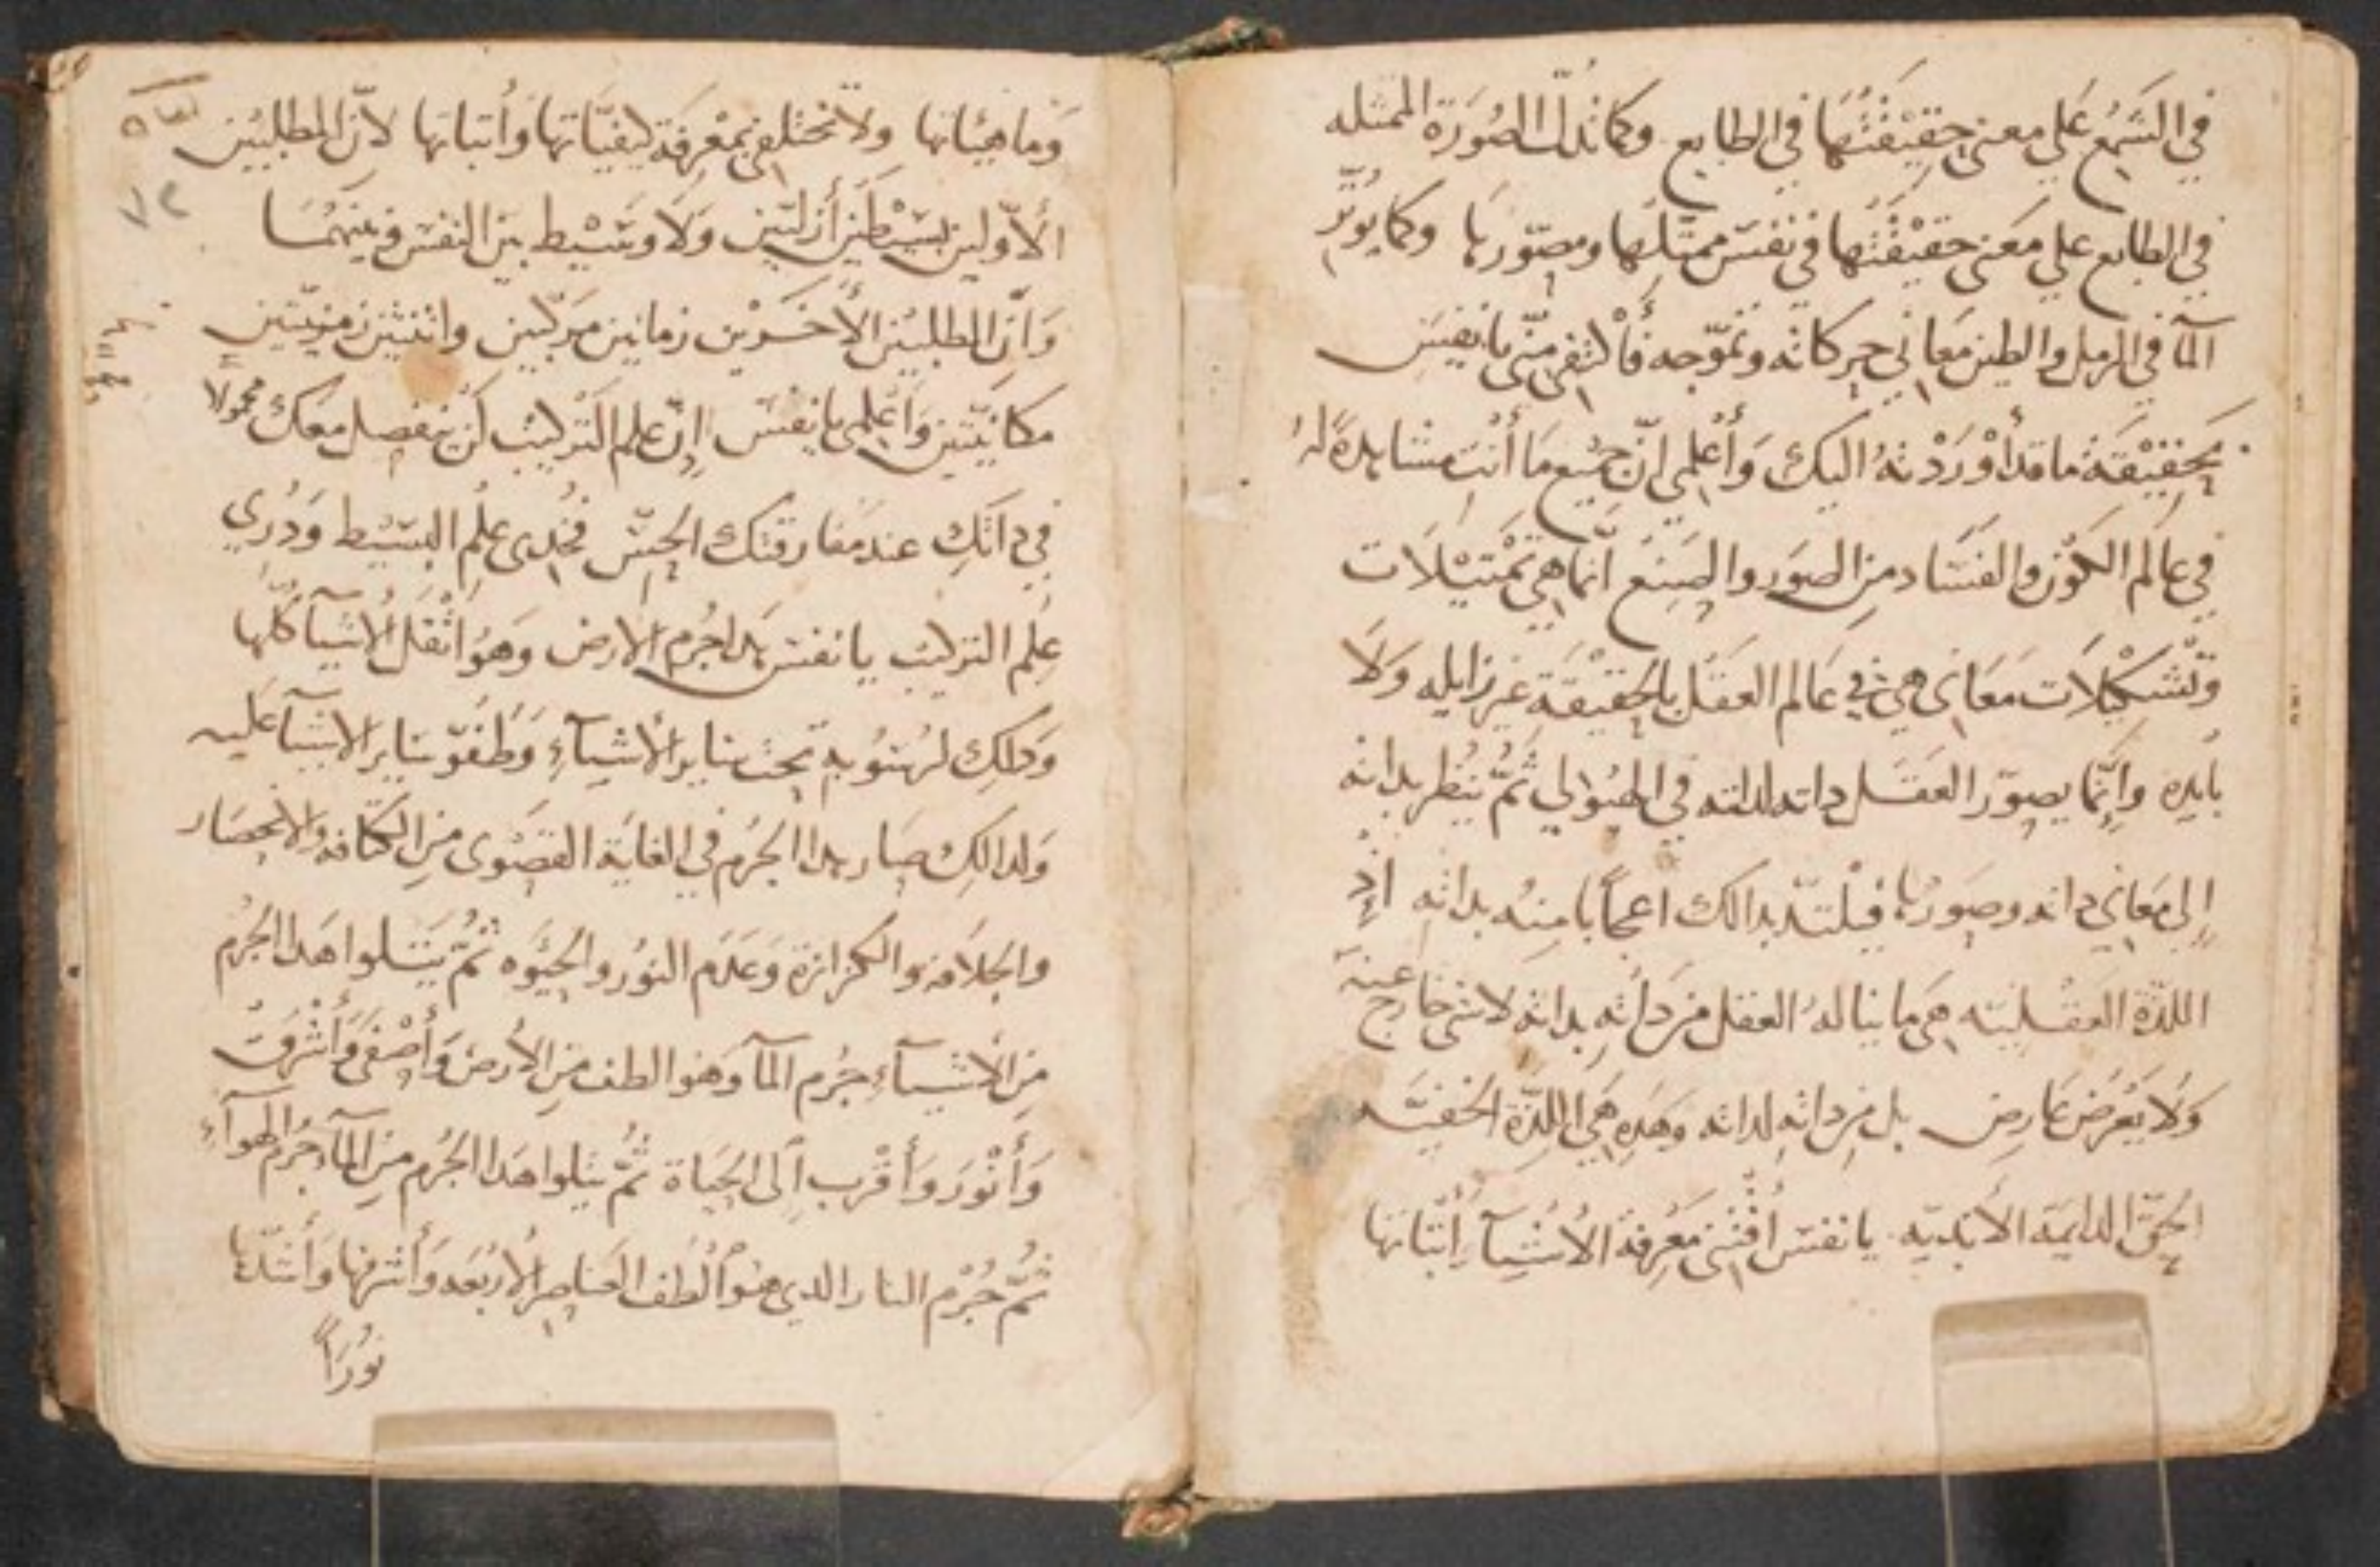 في الشمع علي معني حقيقتها في الطابع وكما تدل الصورة الممثله
في الطابع علي معني حقيقتها في نفس ممثلها ومصوّرها وكما يوثر
المآ في الرمل والطين معاني حركاته وتموّجه فأكتفي منّي يا نفس
بحقيقة ما قد أوردته اليك وأعلمي انّ جميع ما أنت مشاهدة له
في عالم الكون والفساد من الصور والصنع انّما هي تمتيلات
وتشكيلات معاني هي في عالم العقل بالحقيقة غير زايله ولا
بايده وإنّما يصوّر العقل داته لداته في الهيولي ثمّ ينظر بداته
إلى معاني داته وصورها فيلتدّ بدالك اعجاباً منه بداته اذ
اللدّة العقليّه هي ما يناله العقل من داته بداته لا شي خارج عنه
ولا بعرض عارض بل من داته لداته وهده هي اللدّة الحقيّه
الحقّ الدايمة الأبديّه يا نفس أقتني معرفة الأشيآ إتباتها
وماهيّاتها ولا تحتفلي بمعرفة كيفيّاتها وأتباتها لانّ المطلبين
الأوّلين بسيطين أزليّين ولا وسيط بين النفس وبينهما
وانّ المطلبين الأخرين زمانين مركّبين واثنين زمنيّتين
مكانيّتين وأعلمي يا نفس إنّ علم التركيب لن ينفصل معك محمولا
في داتك عند مفارقتك الحسّ فخدي علم البسيط ودري
علم التركيب يا نفس هدا جرم الأرض وهو اثقل الأشيآ كلّها
ودلك لرسوبه تحت ساير الأشيآء وطفوّ ساير الأشيآ عليه
ولدالك صار هدا الجرم في الغاية القصوى من الكتافه والانحصار
والجلافه والكزازة وعدم النور والحيوه ثمّ يتلوا هدا الجرم
من الأشيآء جرم المآ وهو الطف من الأرض وأصفى وأشرف
وأنور وأقرب إلى الحياة ثمّ يتلوا هدا الجرم من المآ جرم الهوآء
ثمّ جرم النار الدي هو ألطف العناصر الأربعه وأشرفها وأشدّها
نوراً